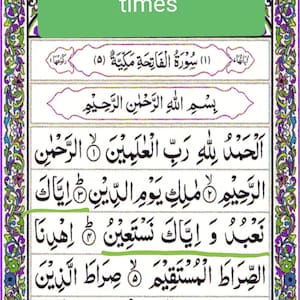 times
(۱) سُوْرَةُ الْفَاتِحَةِ مَكِّيَّةٌ (۵)
بِسْمِ اللّٰهِ الرَّحْمٰنِ الرَّحِيْمِ
اَلْحَمْدُ لِلّٰهِ رَبِّ الْعٰلَمِيْنَ ۙ۱ الرَّحْمٰنِ
الرَّحِيْمِ ۙ۲ مٰلِكِ يَوْمِ الدِّيْنِ ؕ۳ اِيَّاكَ
نَعْبُدُ وَ اِيَّاكَ نَسْتَعِيْنُ ؕ۴ اِهْدِنَا
الصِّرَاطَ الْمُسْتَقِيْمَ ۙ۵ صِرَاطَ الَّذِيْنَ